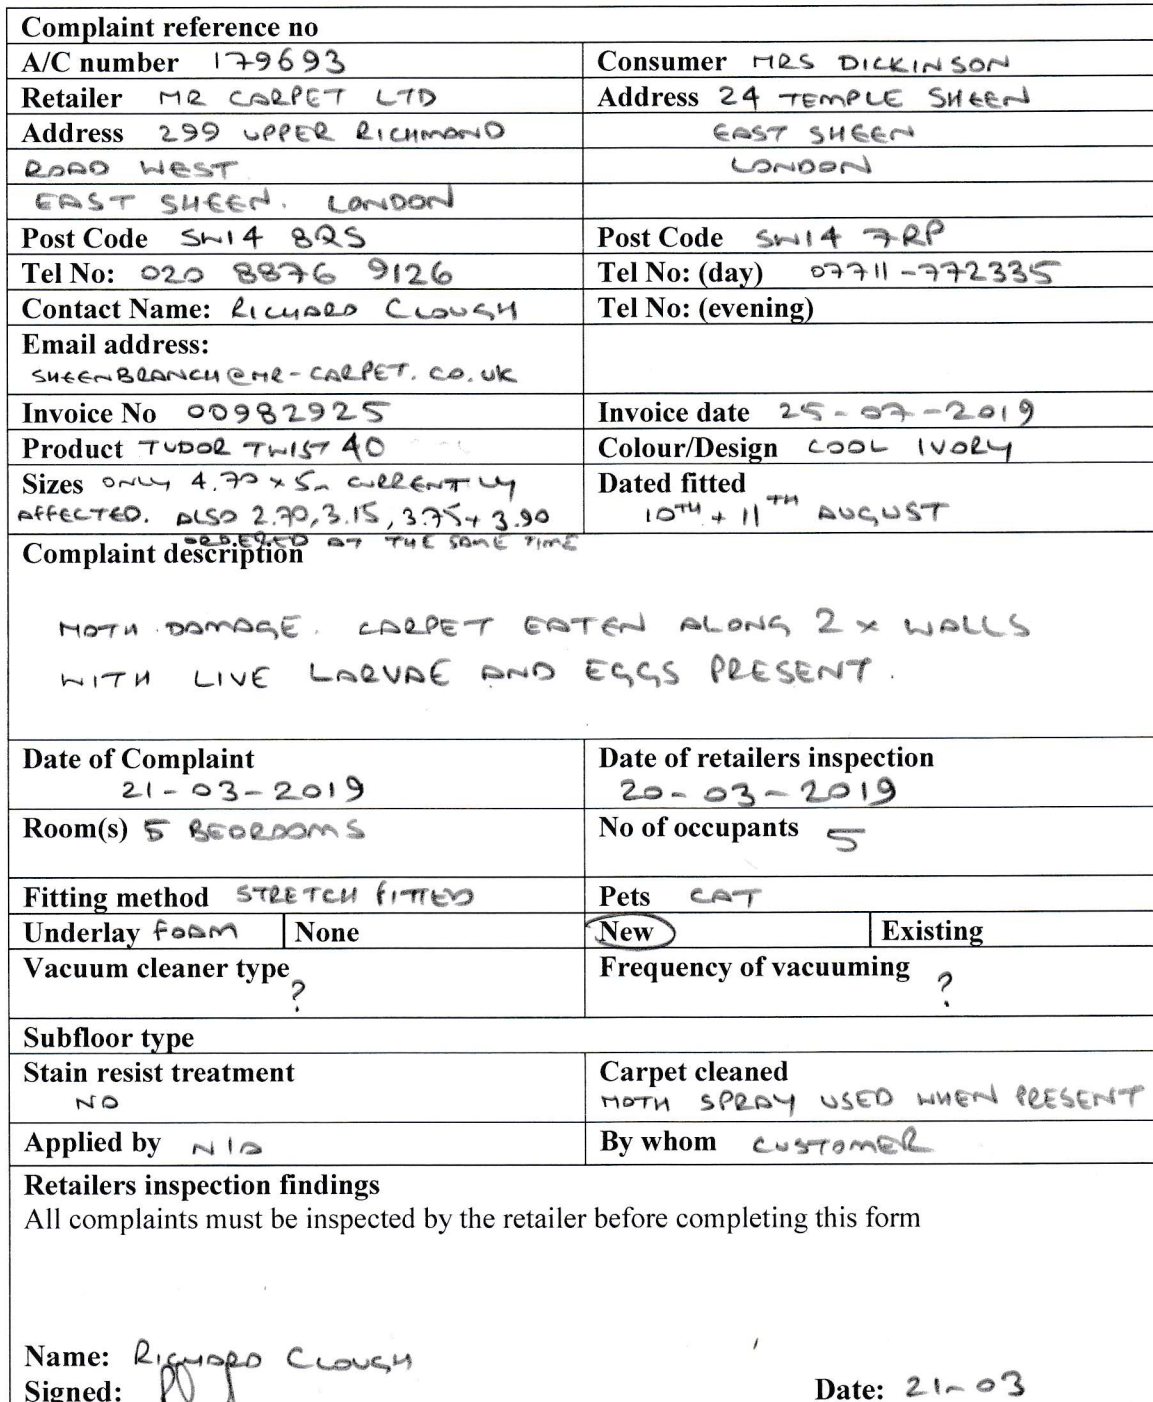 Complaint reference no
A/C number 179693 Consumer MRS DICKINSON
Retailer MR CARPET LTD Address 24 TEMPLE SHEEN
Address 299 UPPER RICHMOND EAST SHEEN
ROAD WEST LONDON
EAST SHEEN. LONDON
Post Code SW14 8QS Post Code SW14 7RP
Tel No: 020 8876 9126 Tel No: (day) 07711-772335
Contact Name: RICHARD CLOUGH Tel No: (evening)
Email address:
SHEENBRANCH@MR-CARPET.CO.UK
Invoice No 00982925 Invoice date 25-07-2019
Product TUDOR TWIST 40 Colour/Design COOL IVORY
Sizes ONLY 4.70 x 5m CURRENTLY Dated fitted
AFFECTED. ALSO 2.70, 3.15, 3.75 + 3.90 10TH + 11TH AUGUST
ORDERED AT THE SAME TIME
Complaint description
MOTH DAMAGE. CARPET EATEN ALONG 2 x WALLS
WITH LIVE LARVAE AND EGGS PRESENT.
Date of Complaint Date of retailers inspection
21-03-2019 20-03-2019
Room(s) 5 BEDROOMS No of occupants 5
Fitting method STRETCH FITTED Pets CAT
Underlay FOAM None New Existing
Vacuum cleaner type ? Frequency of vacuuming ?
Subfloor type
Stain resist treatment Carpet cleaned
NO MOTH SPRAY USED WHEN PRESENT
Applied by N/A By whom CUSTOMER
Retailers inspection findings
All complaints must be inspected by the retailer before completing this form
Name: RICHARD CLOUGH
Signed: Date: 21-03